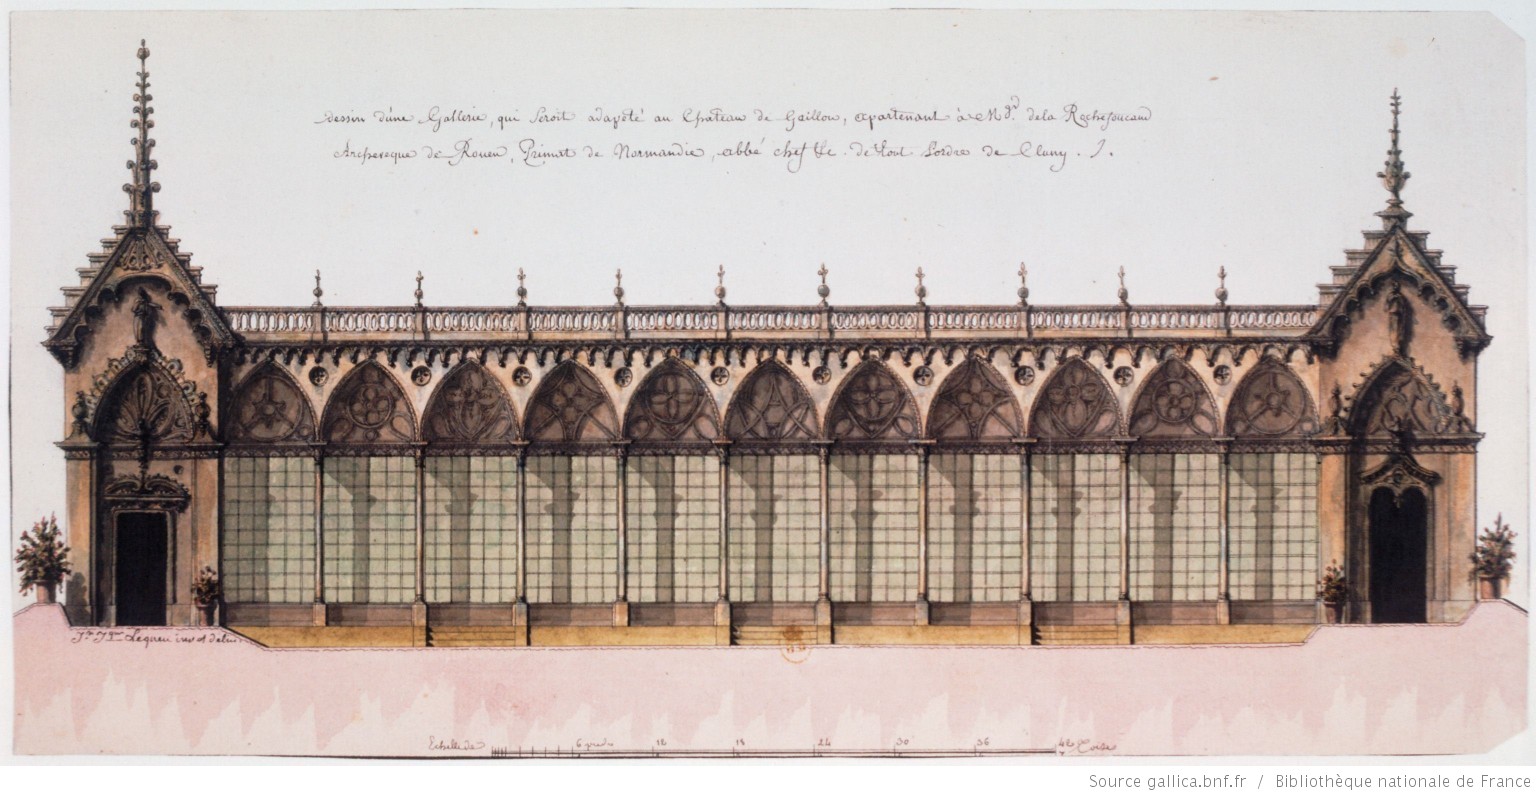 dessin d'une Gallerie, qui seroit adapoté au Chateau de Gaillon, apartenant à M.gr dela Rochefoucaud
Archeveque de Rouen, Primat de Normandie, abbé chef de tout l'ordre de Cluny. J.
Jn Jques Lequeu inv et delin
Echelle de 6 pieds 12 18 24 30 36 42 Toises
Source gallica.bnf.fr / Bibliothèque nationale de France